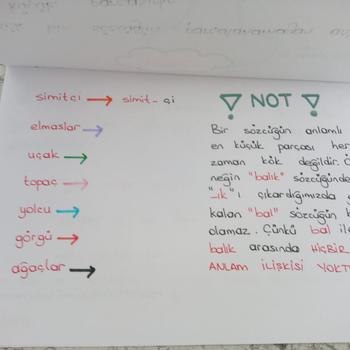 simitçi → simit - çi
elmaslar →
uçak →
topaç →
yolcu →
görgü →
ağaçlar →
NOT
Bir sözcüğün anlamlı
en küçük parçası her
zaman kök değildir.
neğin "balık" sözcüğünde
"-ık" ı çıkardığımızda
kalan "bal" sözcüğün
olamaz. Çünkü bal
balık arasında HİÇBİR
ANLAM İLİŞKİSİ YOKT